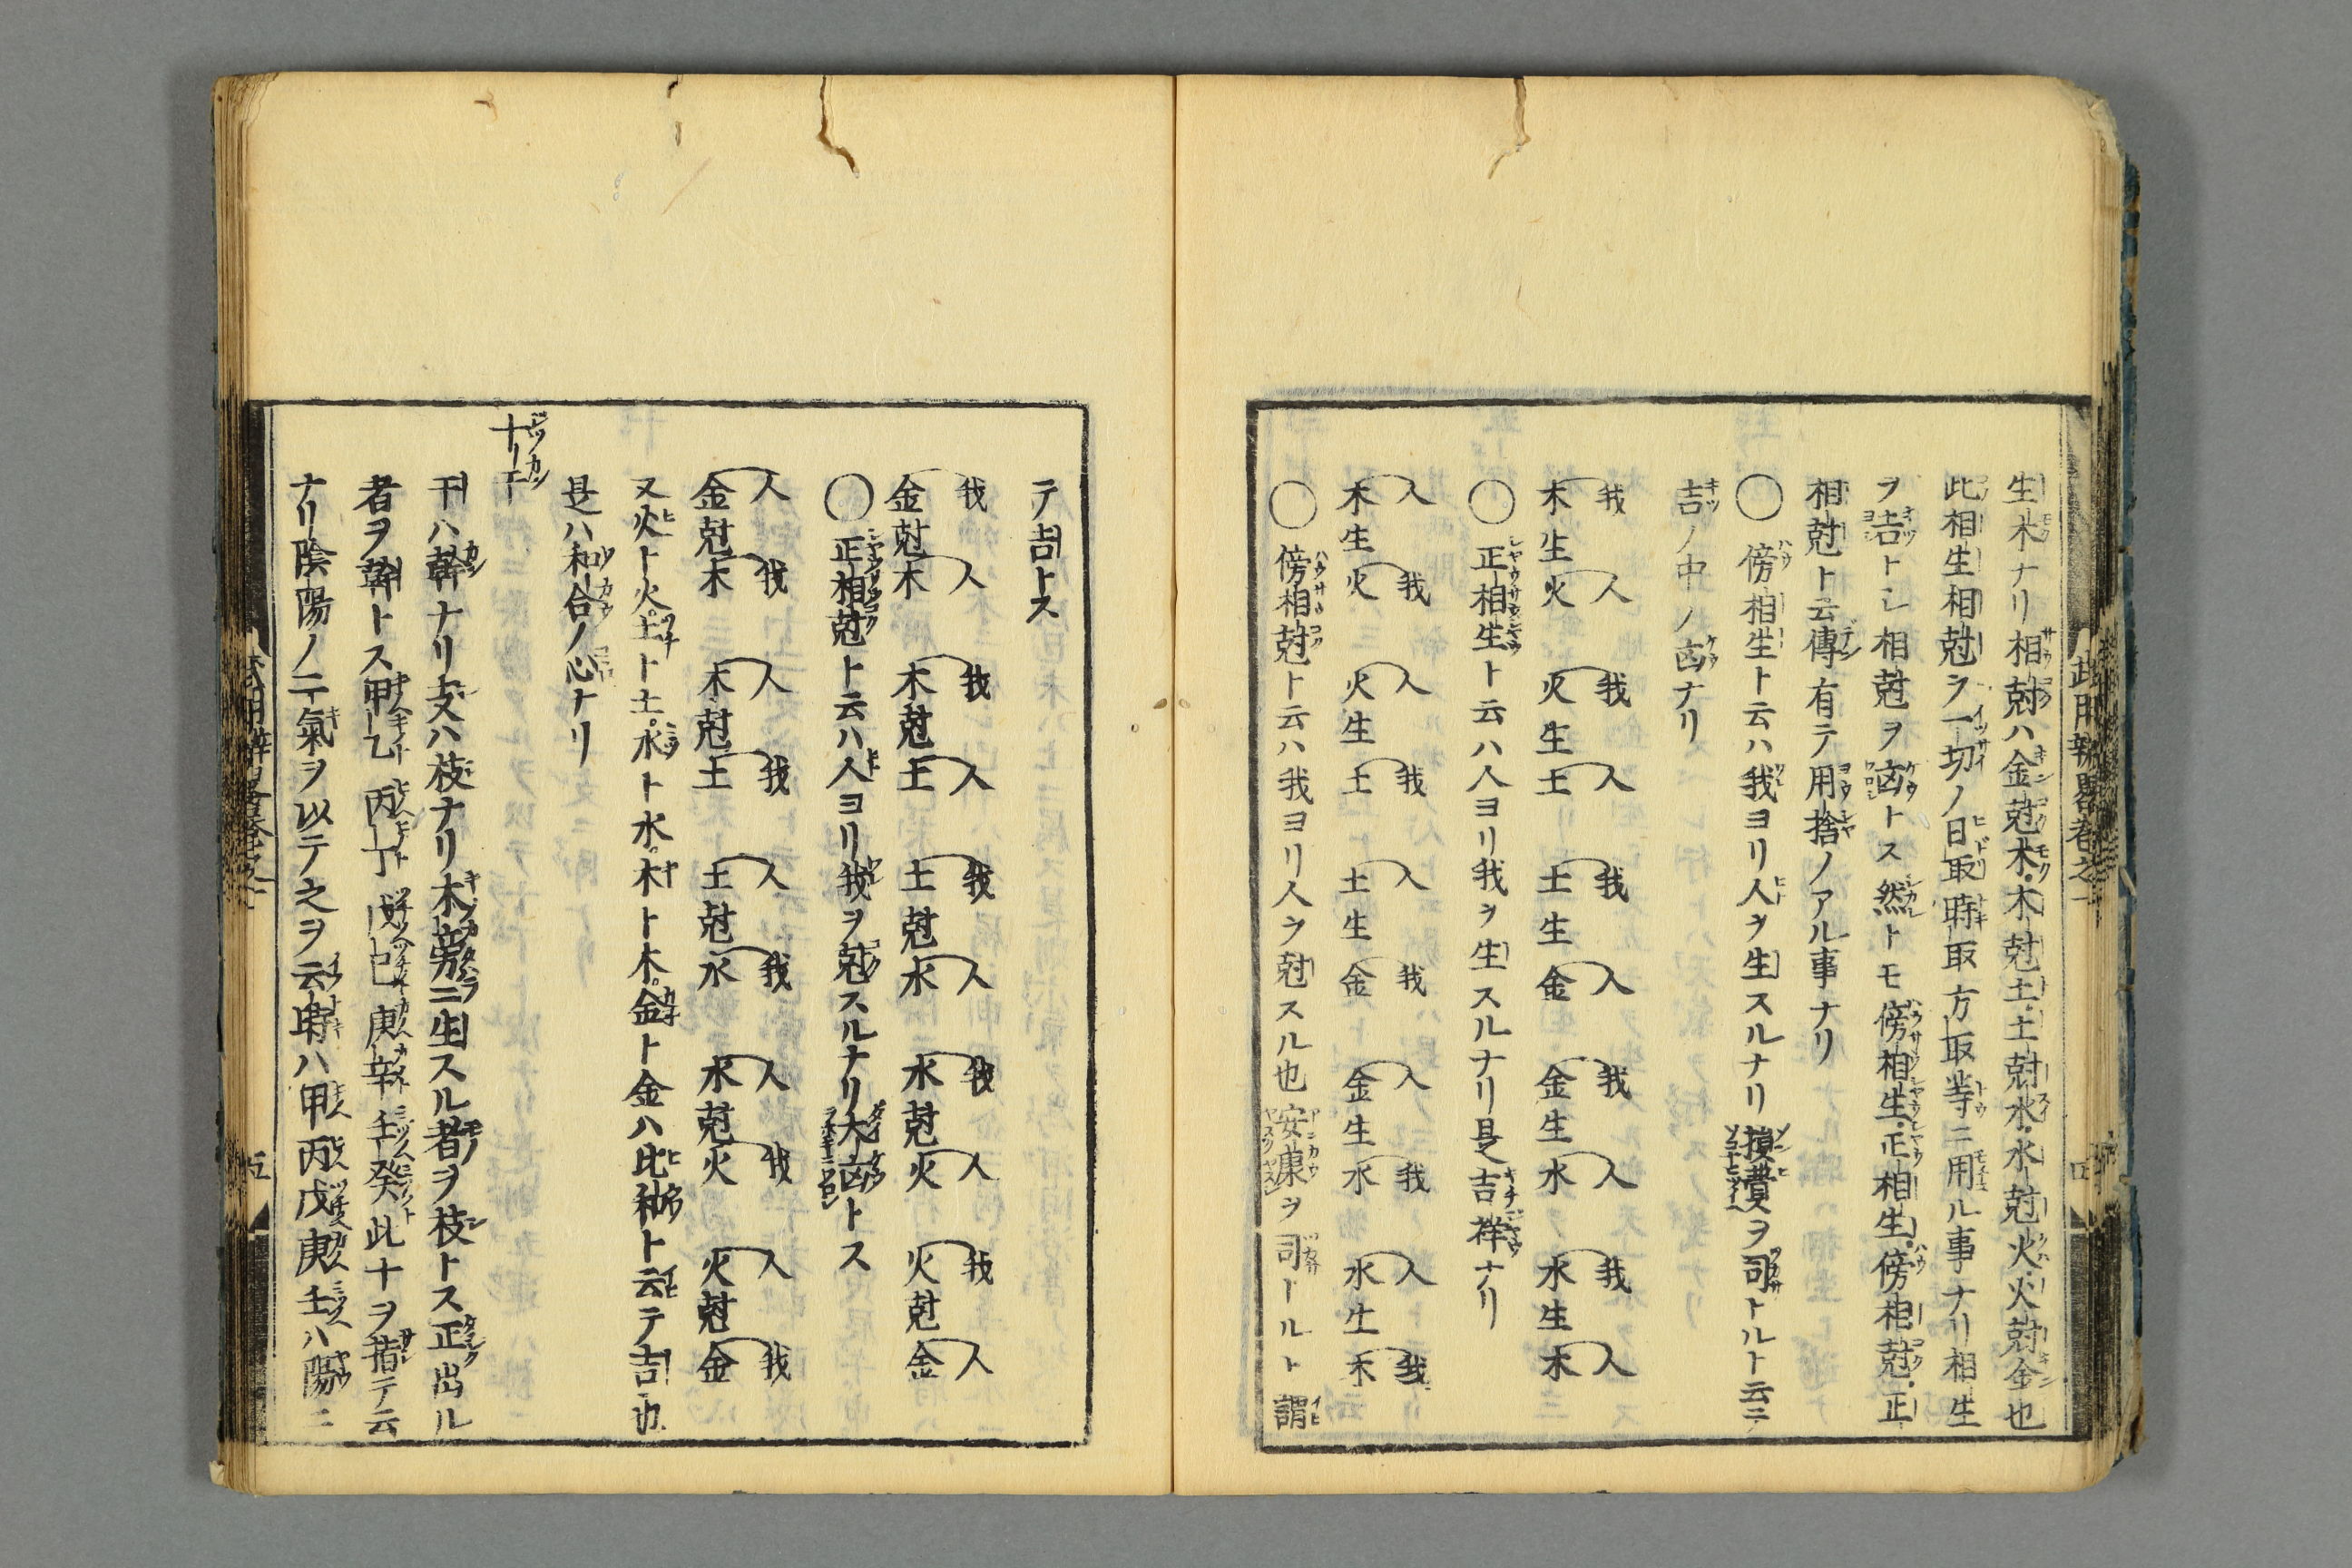 生木ナリ相尅ハ金尅木木尅土土尅水水尅火火尅金也
此相生相尅ヲ一切ノ日取時取方取等ニ用ル事ナリ相生
ヲ吉トシ相尅ヲ凶トス然トモ傍相生正相生傍相尅正
相尅ト云傳有テ用捨ノアル事ナリ
〇傍相生ト云ハ我ヨリ人ヲ生スルナリ損費ヲ司トルト云ニ
吉ノ中ノ凶ナリ
我 人 我 人 我 人 我 人 我 人
木生火 火生土 土生金 金生水 水生木
〇正相生ト云ハ人ヨリ我ヲ生スルナリ是吉祥ナリ
人 我 人 我 人 我 人 我 人 我
木生火 火生土 土生金 金生水 水生木
〇傍相尅ト云ハ我ヨリ人ヲ尅スル也安康ヲ司トルト謂
テ吉トス
我 人 我 人 我 人 我 人 我 人
金尅木 木尅土 土尅水 水尅火 火尅金
〇正相尅ト云ハ人ヨリ我ヲ尅スルナリ大凶トス
人 我 人 我 人 我 人 我 人 我
金尅木 木尅土 土尅水 水尅火 火尅金
又火ト火土ト土水ト水木ト木金ト金ハ比和ト云テ吉也
是ハ和合ノ心ナリ
十干
干ハ幹ナリ支ハ枝ナリ木旁ニ生スル者ヲ枝トス正出ル
者ヲ幹トス甲乙丙丁戊己庚辛壬癸此十ヲ指テ云
ナリ陰陽ノ二氣ヲ以テ之ヲ云時ハ甲丙戊庚壬ハ陽ニ